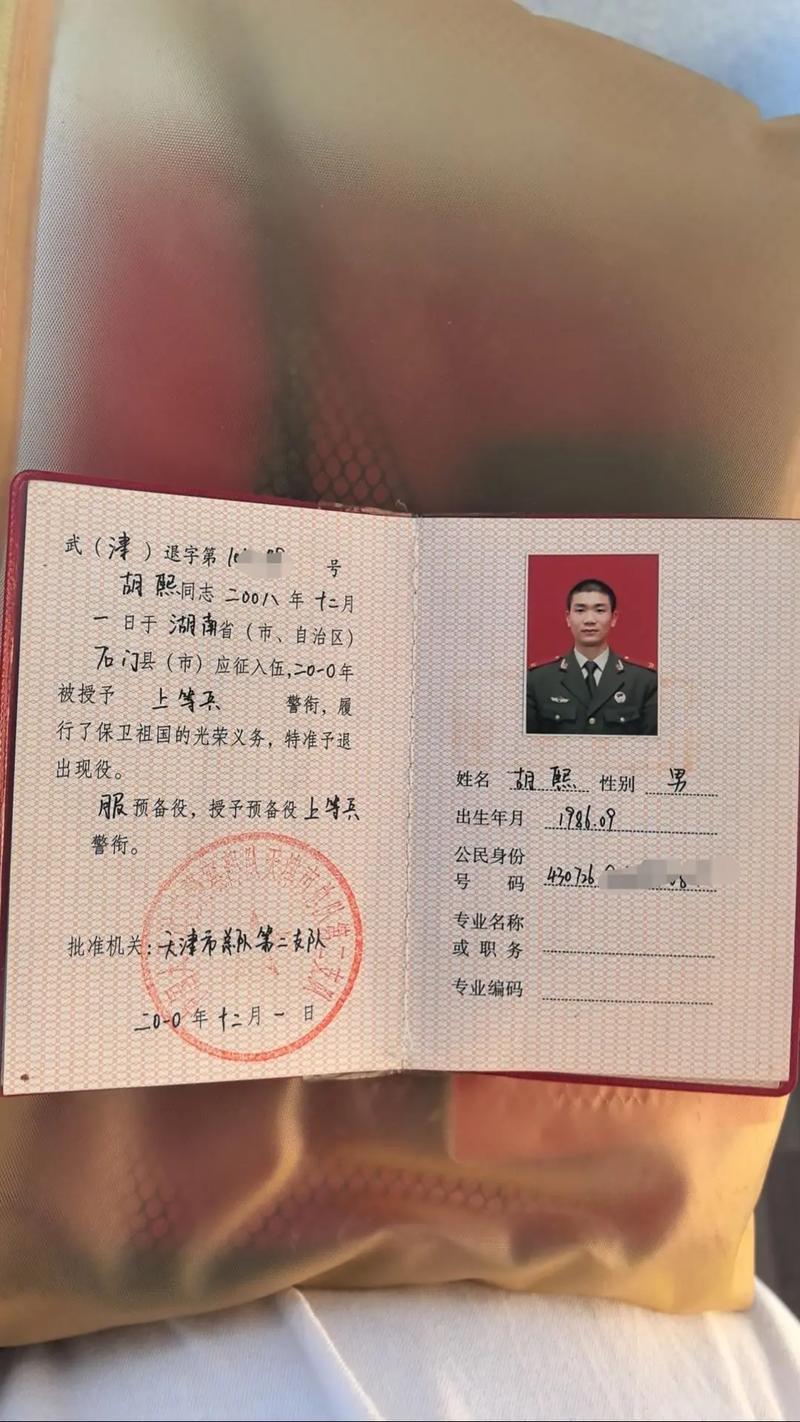 武（津）退字第 号
胡熙同志二00八年十二月
一日于湖南省（市、自治区）
石门县（市）应征入伍，二0一0年
被授予 上等兵 警衔，履
行了保卫祖国的光荣义务，特准予退
出现役。
服预备役，授予预备役上等兵
警衔。
批准机关：天津市总队第二支队
二0一0年十二月一日
姓名 胡熙 性别 男
出生年月 1986.09
公民身份
号码 430726
专业名称
或职务
专业编码